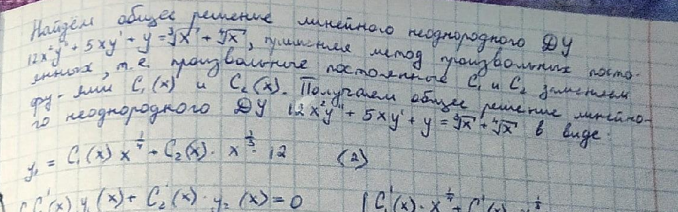 Найдём общее решение линейного неоднородного ДУ
12x²y'' + 5xy' + y = ∛x + ∜x, применяя метод произвольных посто-
янных, т.е произвольные постоянные C₁ и C₂ заменяем
фу-ями C₁(x) и C₂(x). Получаем общее решение линейно-
го неоднородного ДУ 12x²y'' + 5xy' + y = ∛x + ∜x в виде:
y₁ = C₁(x) x^{1/4} + C₂(x) · x^{1/3} · 12 (2)
C₁'(x) y₁(x) + C₂'(x) · y₂(x) = 0